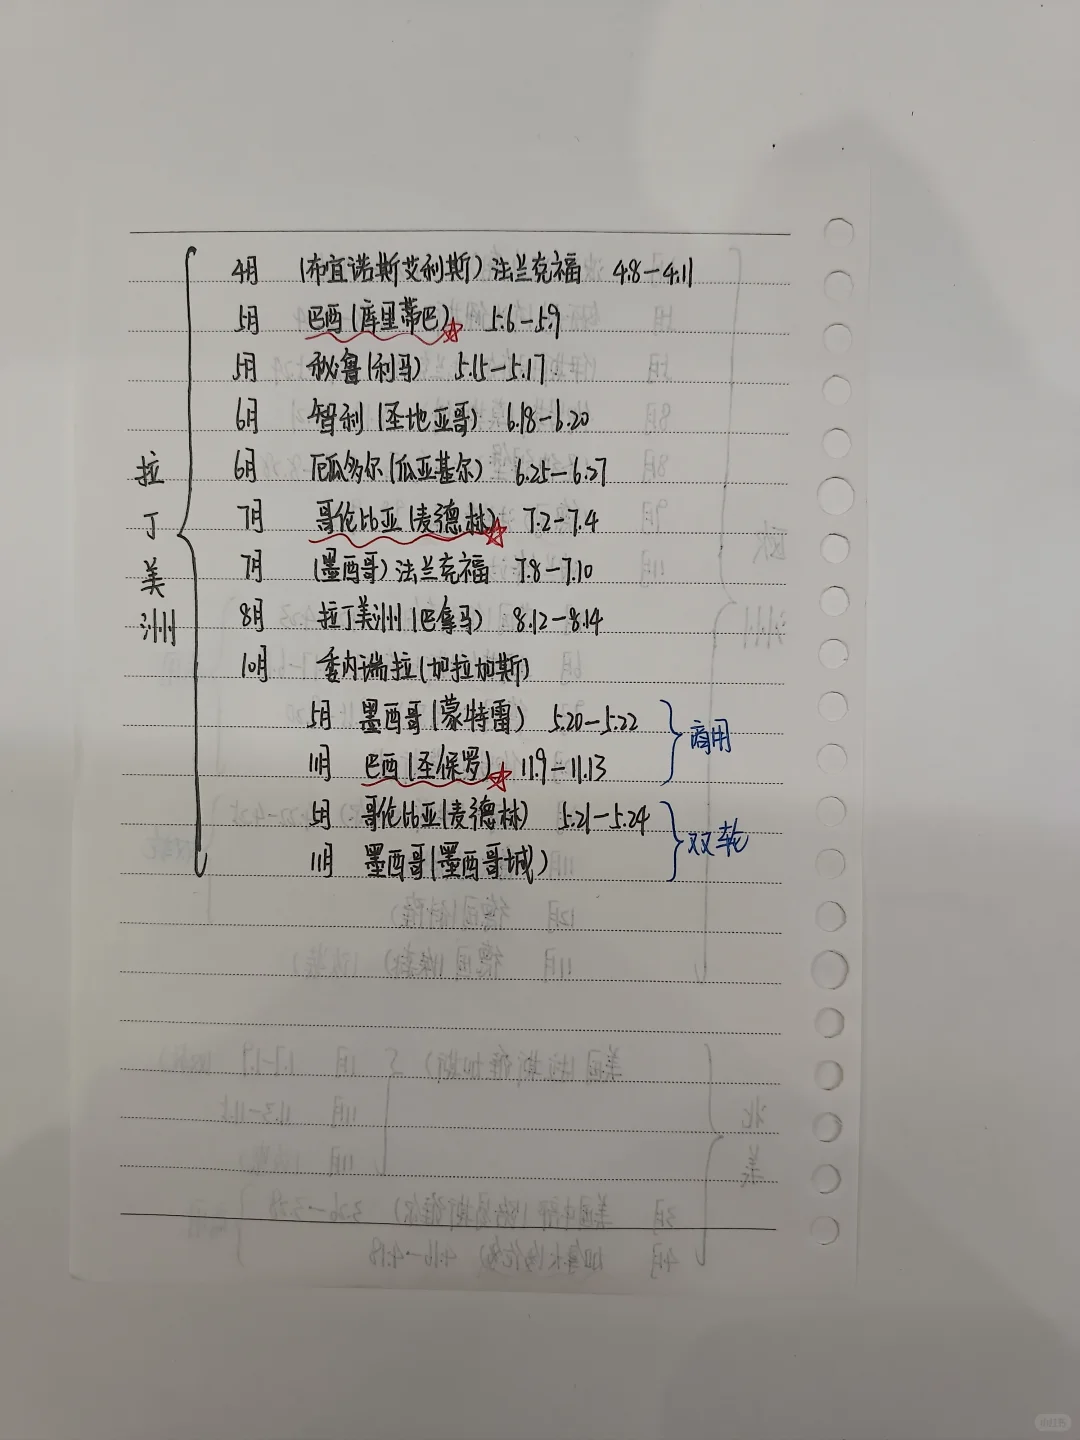 4月 (布宜诺斯艾利斯) 法兰克福 4.8-4.11
5月 巴西(库里蒂巴)☆ 5.6-5.9
5月 秘鲁(利马) 5.15-5.17
6月 智利(圣地亚哥) 6.18-6.20
6月 厄瓜多尔(瓜亚基尔) 6.25-6.27
7月 哥伦比亚(麦德林)☆ 7.2-7.4
7月 (墨西哥)法兰克福 7.8-7.10
8月 拉丁美洲(巴拿马) 8.12-8.14
10月 委内瑞拉(加拉加斯)
5月 墨西哥(蒙特雷) 5.20-5.22
11月 巴西(圣保罗)☆ 11.9-11.13
商用
5月 哥伦比亚(麦德林) 5.21-5.24
11月 墨西哥(墨西哥城)
双轮
拉丁美洲
小红书